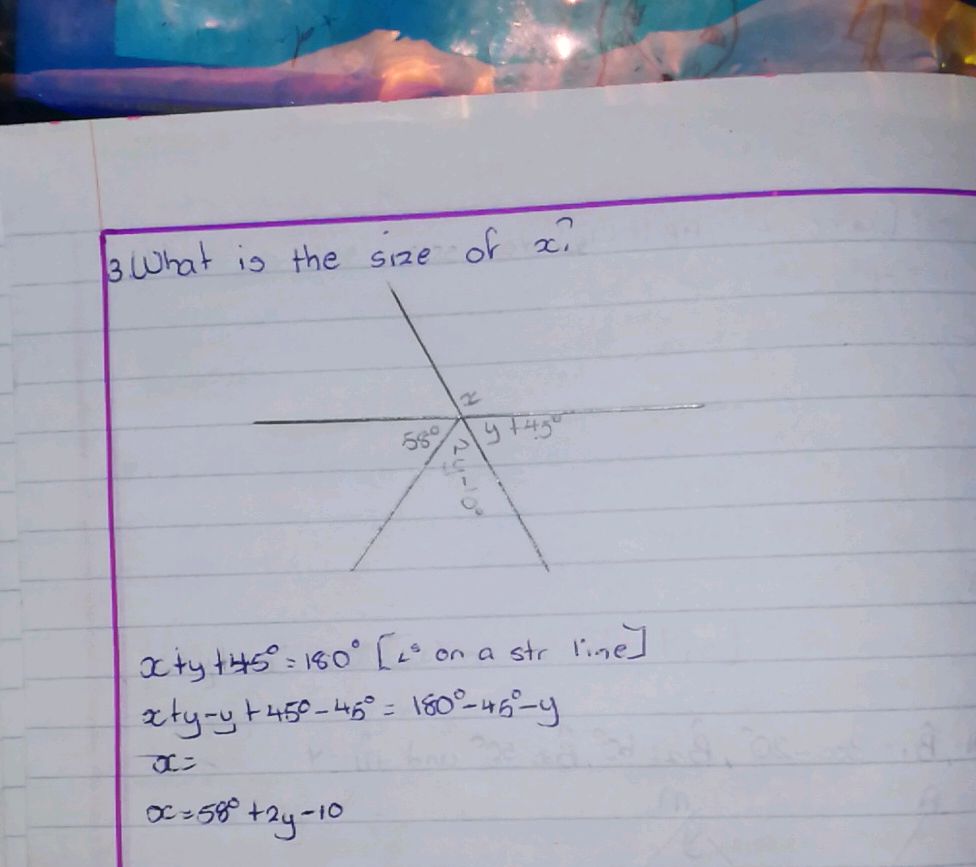 3.What is the size of x?
x
58° y+45°
2y-10°
x+y+45°=180° [∠s on a str line]
x+y-y+45°-45°= 180°-45°-y
x=
x=58°+2y-10